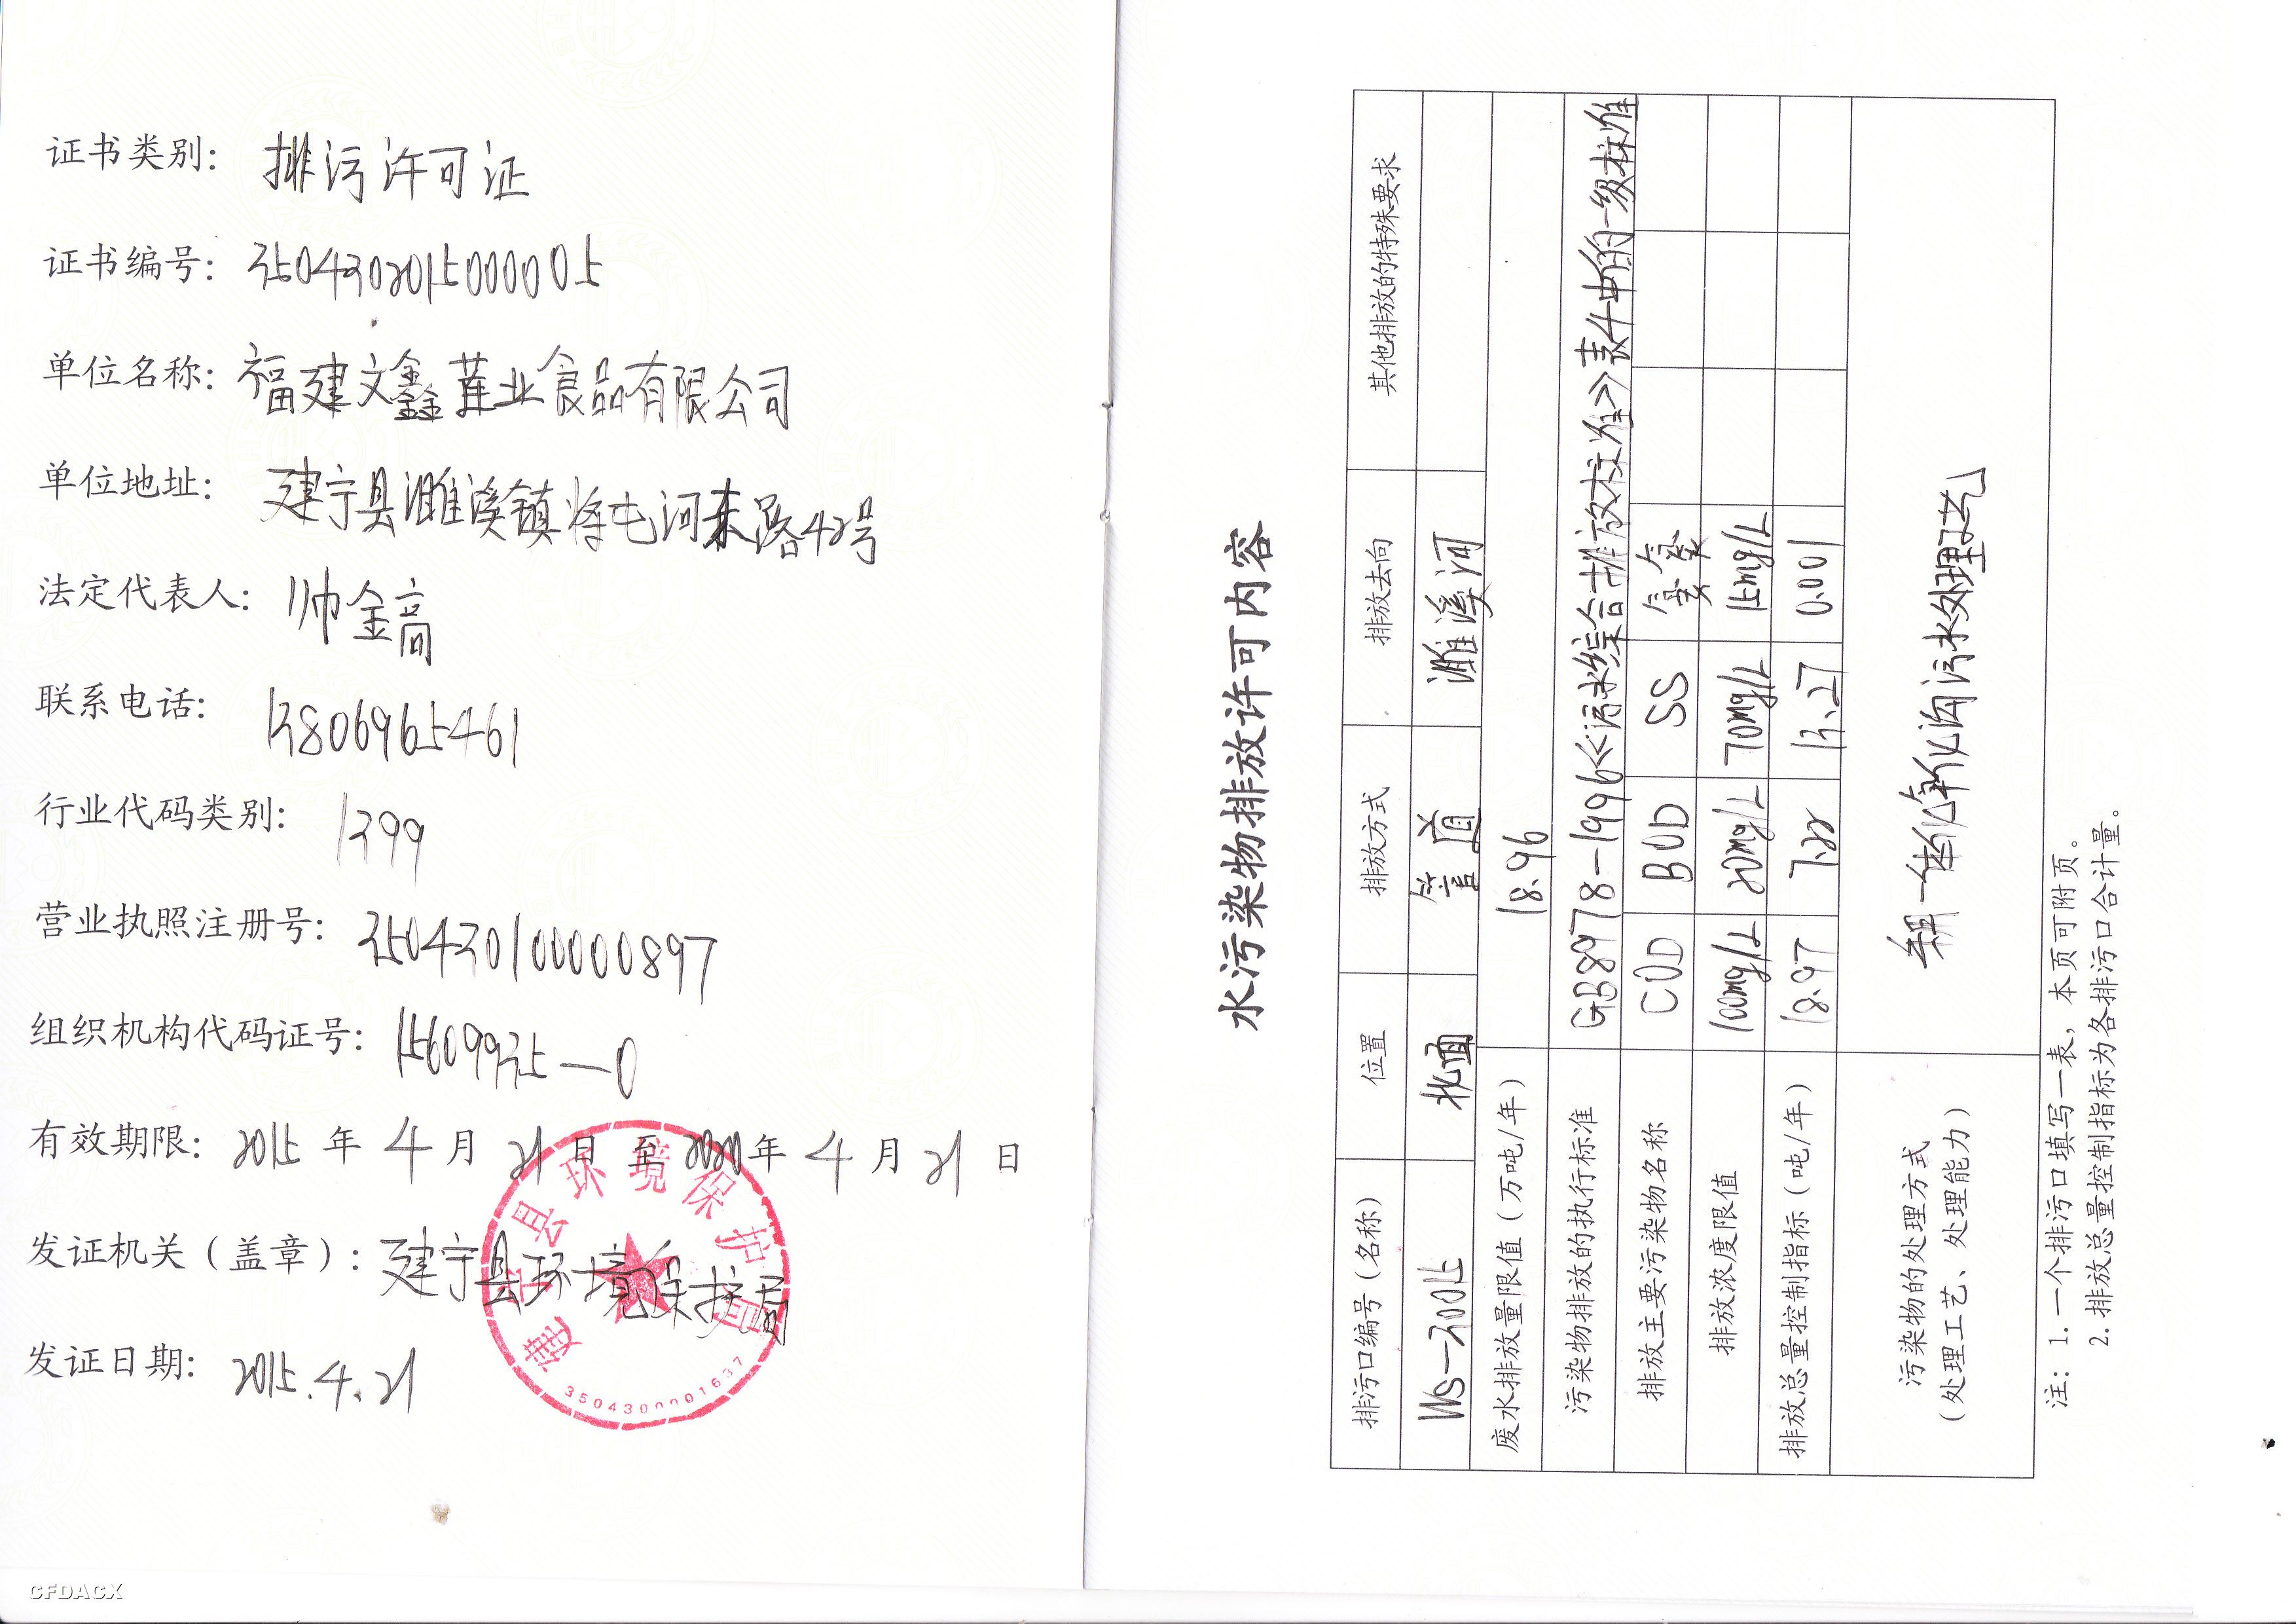 证书类别: 排污许可证
证书编号: 3504302015000005
单位名称: 福建文鑫莲业食品有限公司
单位地址: 建宁县濉溪镇将屯河东路42号
法定代表人: 帅金高
联系电话: 13806965461
行业代码类别: 1399
营业执照注册号: 350430100000897
组织机构代码证号: 15609935—0
有效期限: 2015 年 4 月 21 日 至 2020 年 4 月 21 日
发证机关（盖章）: 建宁县环境保护局
发证日期: 2015.4.21
建宁县环境保护局
3504300001637
CFDACX
水污染物排放许可内容
排污口编号（名称） 位置 排放方式 排放去向 其他排放的特殊要求
WS-30015 北面 管道 濉溪河
废水排放量限值（万吨/年） 18.96
污染物排放的执行标准 GB8978-1996《污水综合排放标准》表4中的一级标准
排放主要污染物名称 COD BOD SS 氨氮
排放浓度限值 100mg/L 20mg/L 70mg/L 15mg/L
排放总量控制指标（吨/年） 18.97 7.22 13.27 0.001
污染物的处理方式
（处理工艺、处理能力） 一体氧化沟污水处理工艺
注: 1.一个排污口填写一表，本页可附页。
2.排放总量控制指标为各排污口合计量。